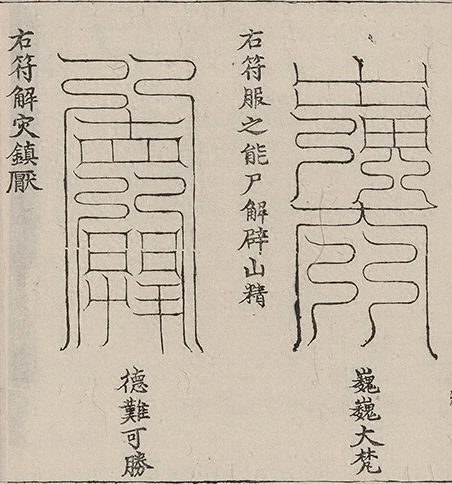 巍巍大梵
右符服之能尸解辟山精
德難可勝
右符解灾鎮厭